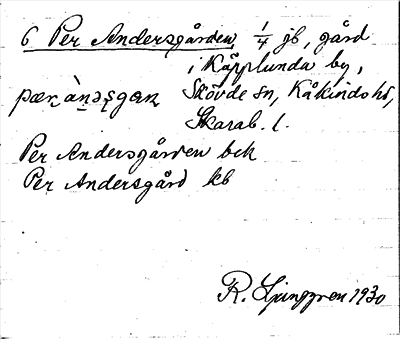 6 Per Andersgården, 1/4 jb, gård
i Käpplunda by,
Skövde sn, Kåkinds hd,
Skarab. l.
Per Andersgården bck
Per Andersgård kb
R. Ljunggren 1930